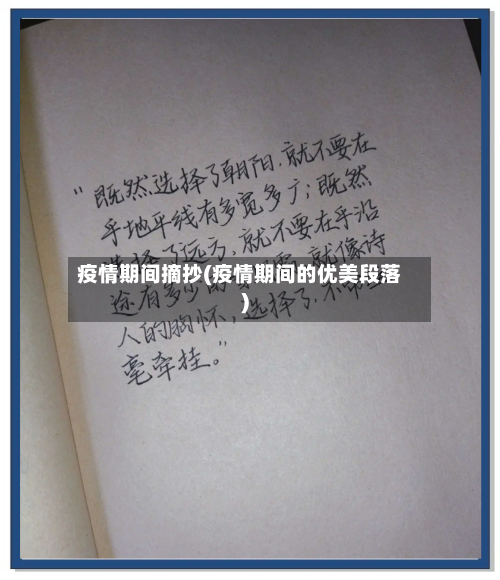 “既然选择了朝阳，就不要在
乎地平线有多宽多广；既然
选择了远方，就不要在乎沿
途有多少的，就像诗
人的胸怀，选择了，不
毫牵挂。”
疫情期间摘抄(疫情期间的优美段落
)